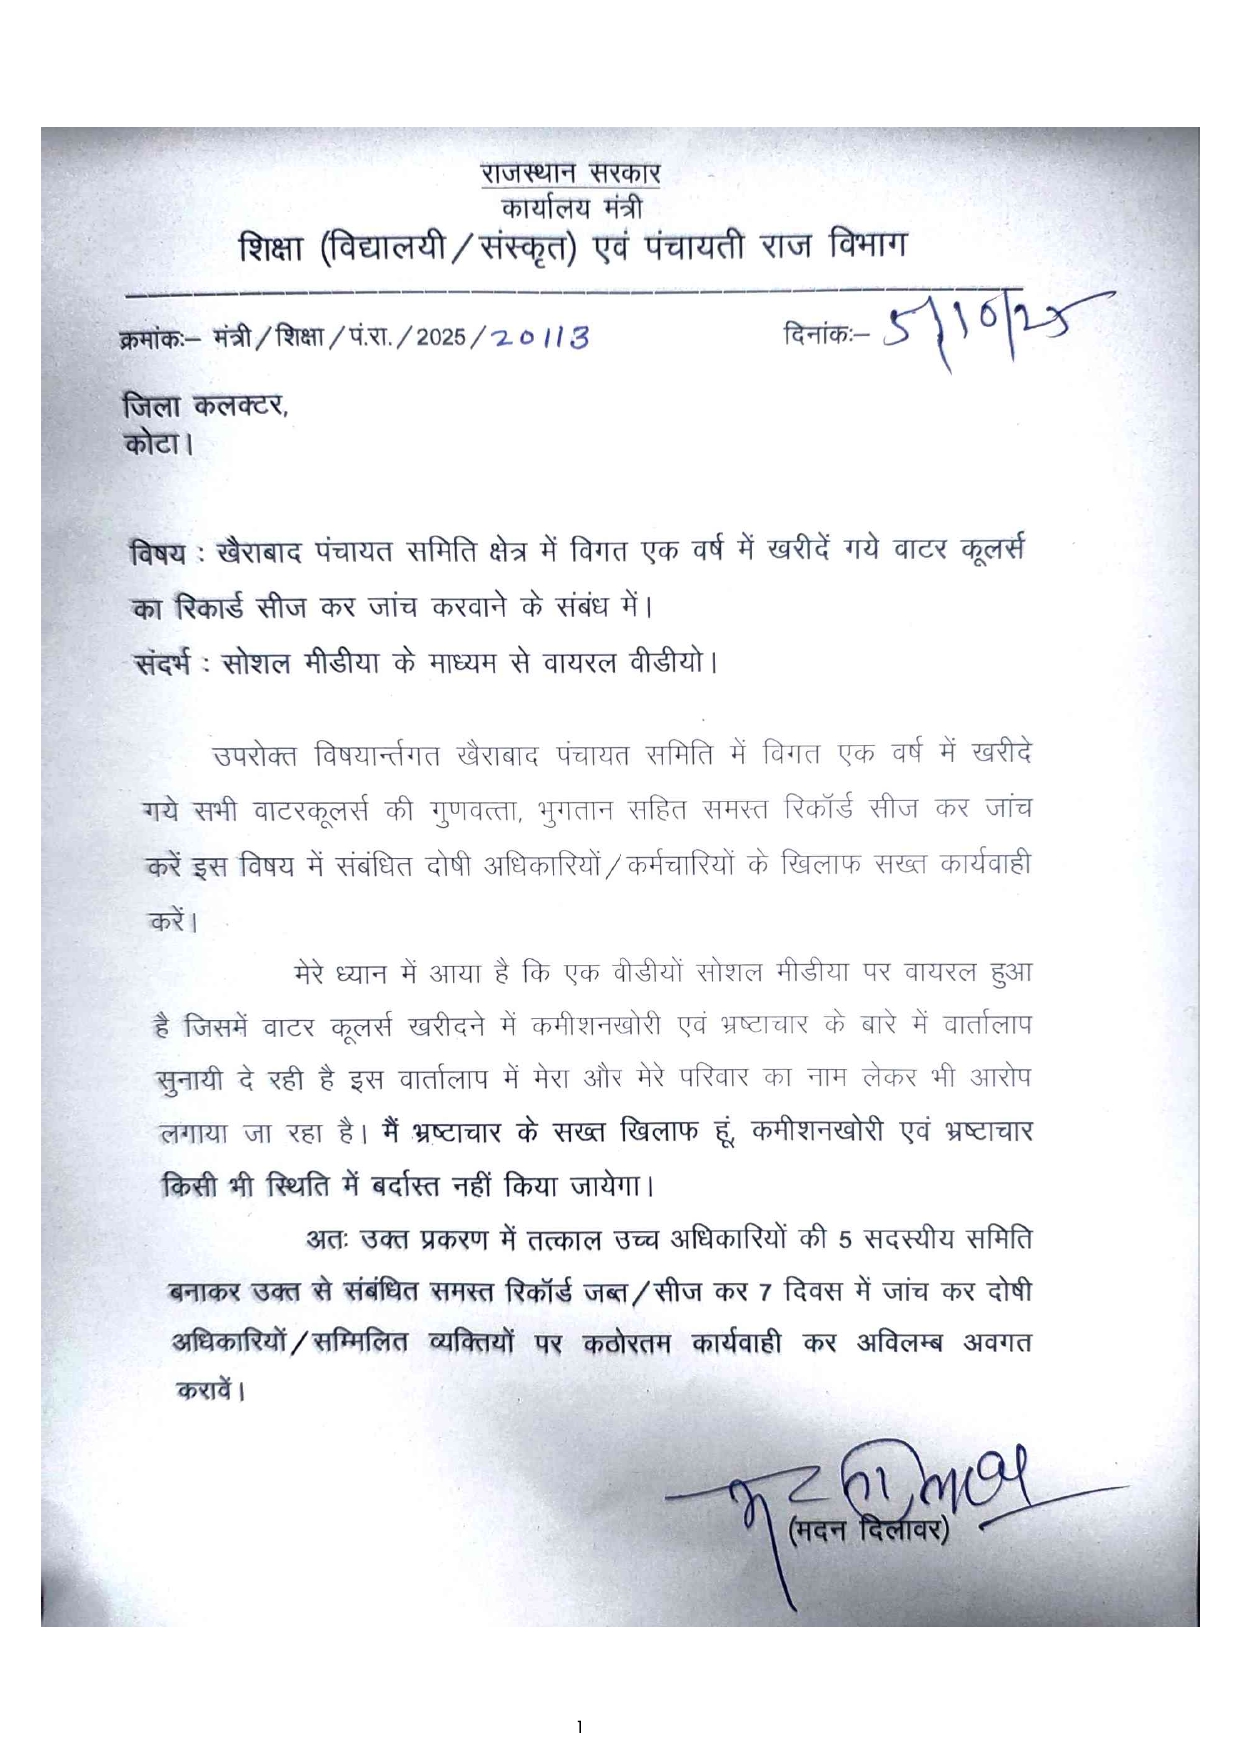 राजस्थान सरकार
कार्यालय मंत्री
शिक्षा (विद्यालयी/संस्कृत) एवं पंचायती राज विभाग
क्रमांकः– मंत्री/शिक्षा/पं.रा./2025/20113
दिनांकः– 5/10/25
जिला कलक्टर,
कोटा।
विषय : खैराबाद पंचायत समिति क्षेत्र में विगत एक वर्ष में खरीदें गये वाटर कूलर्स
का रिकार्ड सीज कर जांच करवाने के संबंध में।
संदर्भ : सोशल मीडीया के माध्यम से वायरल वीडीयो।
उपरोक्त विषयार्न्तगत खैराबाद पंचायत समिति में विगत एक वर्ष में खरीदे
गये सभी वाटरकूलर्स की गुणवत्ता, भुगतान सहित समस्त रिकॉर्ड सीज कर जांच
करें इस विषय में संबंधित दोषी अधिकारियों/कर्मचारियों के खिलाफ सख्त कार्यवाही
करें।
मेरे ध्यान में आया है कि एक वीडीयों सोशल मीडीया पर वायरल हुआ
है जिसमें वाटर कूलर्स खरीदने में कमीशनखोरी एवं भ्रष्टाचार के बारे में वार्तालाप
सुनायी दे रही है इस वार्तालाप में मेरा और मेरे परिवार का नाम लेकर भी आरोप
लगाया जा रहा है। मैं भ्रष्टाचार के सख्त खिलाफ हूं, कमीशनखोरी एवं भ्रष्टाचार
किसी भी स्थिति में बर्दास्त नहीं किया जायेगा।
अतः उक्त प्रकरण में तत्काल उच्च अधिकारियों की 5 सदस्यीय समिति
बनाकर उक्त से संबंधित समस्त रिकॉर्ड जब्त/सीज कर 7 दिवस में जांच कर दोषी
अधिकारियों/सम्मिलित व्यक्तियों पर कठोरतम कार्यवाही कर अविलम्ब अवगत
करावें।
(मदन दिलावर)
1